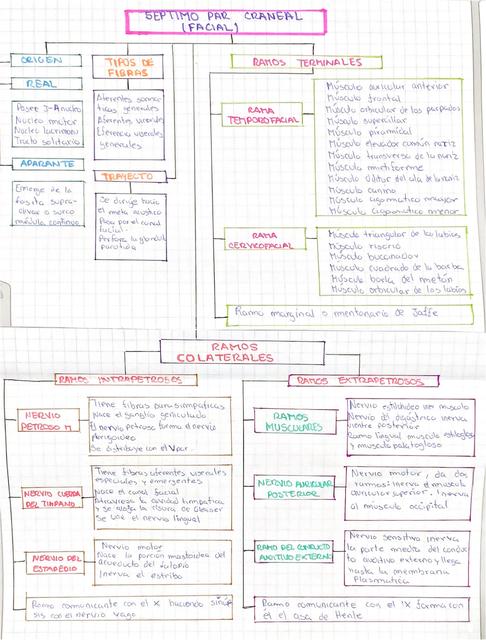 SEPTIMO PAR CRANEAL
(FACIAL)
ORIGEN
REAL
Posee 3-4 nucleo
Nucleo motor
Nucleo lacrimomu
Tracto solitario
APARANTE
Emerge de la
fosita supra-
olivar o surco
médula continuo
TIPOS DE
FIBRAS
Aferentes somá-
ticas generales
Aferentes viscerales
Eferencia viscerales
generales
TRAYECTO
Se dirige hacia
el meta acústico
Pasa por el canal
facial-
Perfora la glandula
parotida
RAMOS TERMINALES
RAMA
TEMPOROFACIAL
Músculo auricular anterior
Músculo frontal
Músculo orbicular de los parpados
Músculo superciliar
Músculo piramidal
Músculo elevador común nariz
Músculo transverso de la nariz
Músculo mirtiforme
Músculo del ala de la nariz
Músculo canino
Músculo cigomatico mayor
Músculo Cigomatico menor
RAMA
CERVICOFACIAL
Músculo triangular de los labios
Músculo risorio
Músculo buccinador
Músculo cuadrado de la barba
Músculo borla del mentón
Músculo orbicular de los labios
Ramo marginal o mentoniano de Jaffe
RAMOS
COLATERALES
RAMOS INTRAPETROSOS
NERVIO
PETROSO M
Tiene fibras parasimpaticas
Nace el ganglio geniculado
El nervio petroso forma el nervio
pterigoideo
Se distribuye con el V par
NERVIO CUERDA
DEL TIMPANO
Tiene fibras aferentes viscerales
especiales y emergentes
Nace el canal facial
Atraviesa la cavidad timpatica
y se aloja la fisura de Glasser
Se une el nervio lingual
NERVIO DEL
ESTAPEDIO
Nervio motor
Nace la porción mastoidea del
acueducto del falopio
Inerva el estribo
Ramo comunicante con el X haciendo sinap
sis con el nervio vago
RAMOS EXTRAPETROSOS
RAMOS
MUSCULARES
Nervio estilohideo ver musculo
Nervio del digástrico inerva
vientre posterior
Ramo lingual musculo estilogloso
y musculo palatogloso
NERVIO AURICULAR
POSTERIOR
Nervio motor, da dos
ramos: inerva el musculo
auricular superior. Inerva
al músculo occipital
RAMO DEL CONDUCTO
AUDITIVO EXTERNO
Nervio sensitivo inerva
la parte media del conduc
to auditivo externo y llega
hasta la membrana
Plasmatica
Ramo comunicante con el IX forma con
él el asa de Hente